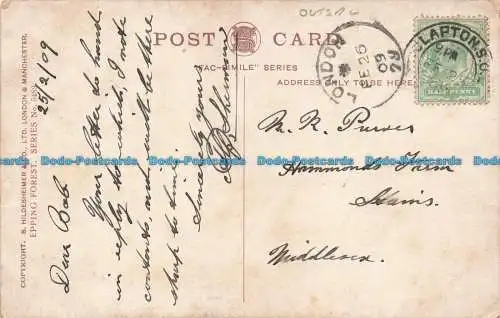 POST CARD
"FAC-SIMILE" SERIES
ADDRESS ONLY TO BE HERE
COPYRIGHT. S. HILDESHEIMER & CO., LTD. LONDON & MANCHESTER.
EPPING FOREST. SERIES No.
25/2/09
Dear Bob
Your letter to hand
in reply to which, I note
contents, and will be there
sharp to time.
Sincerely yours
LONDON
FE 26
09
CLAPTON S.O.
HALF PENNY
M. R. Purves
Hammonds Farm
Stains
Middlesex
Bobs-Postcards
Bobs-Postcards
Bobs-Postcards
Bobs-Postcards
Bobs-Postcards
Bobs-Postcards